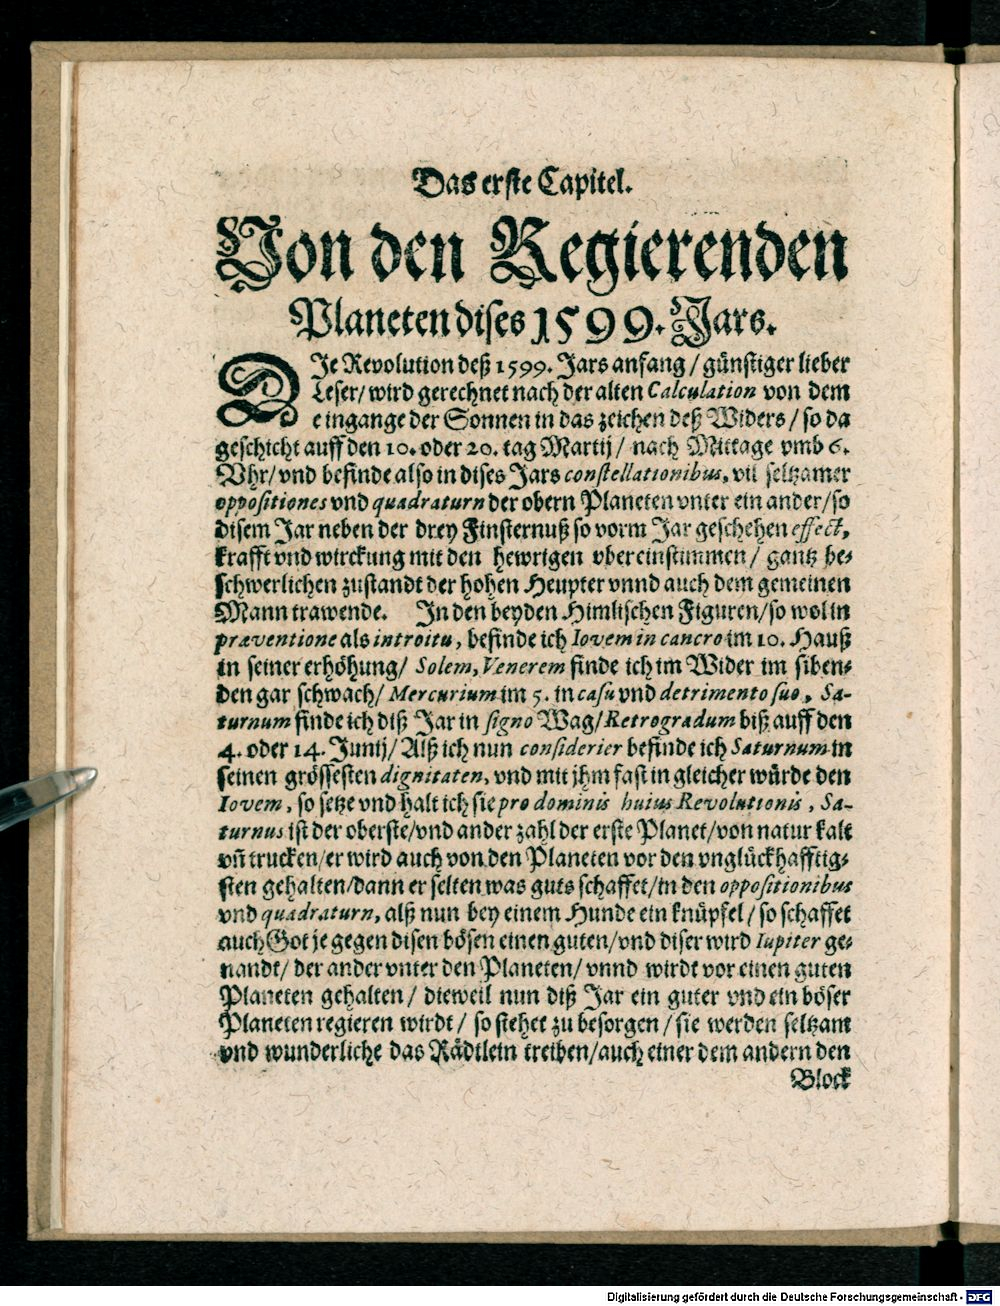 Das erste Capitel.
Von den Regierenden
Planeten dises 1599. Jars.
DJe Revolution deß 1599. Jars anfang / günstiger lieber
Leser/ wird gerechnet nach der alten Calculation von dem
eingange der Sonnen in das zeichen deß Widers / so da
geschicht auff den 10. oder 20. tag Martij / nach Mittage vmb 6.
Vhr/ vnd befinde also in dises Jars constellationibus, vil seltzamer
oppositiones vnd quadraturn der obern Planeten vnter ein ander/so
disem Jar neben der drey Finsternuß so vorm Jar geschehen effect,
krafft vnd wirckung mit den hewrigen vbereinstimmen / gantz be-
schwerlichen zustandt der hohen Heupter vnnd auch dem gemeinen
Mann trawende. Jn den beyden Himlischen Figuren/so wol in
præventione als introitu, befinde ich Iovem in cancro im 10. Hauß
in seiner erhöhung/ Solem, Venerem finde ich im Wider im siben-
den gar schwach/ Mercurium im 5. in casu vnd detrimento suo, Sa-
turnum finde ich diß Jar in signo Wag/ Retrogradum biß auff den
4. oder 14. Junij/ Alß ich nun considerier befinde ich Saturnum in
seinen grössesten dignitaten, vnd mit jhm fast in gleicher würde den
Iovem, so setze vnd halt ich sie pro dominis huius Revolutionis, Sa-
turnus ist der oberste/vnd ander zahl der erste Planet/von natur kalt
vñ trucken/er wird auch von den Planeten vor den vnglückhafftig-
sten gehalten/dann er selten was guts schaffet/in den oppositionibus
vnd quadraturn, alß nun bey einem Hunde ein knüpfel/ so schaffet
auch Got je gegen disen bösen einen guten/vnd diser wird Iupiter ge-
nandt/ der ander vnter den Planeten/ vnnd wirdt vor einen guten
Planeten gehalten / dieweil nun diß Jar ein guter vnd ein böser
Planeten regieren wirdt / so stehet zu besorgen / sie werden seltzam
vnd wunderliche das Rädtlein treiben/auch einer dem andern den
Block
Digitalisierung gefördert durch die Deutsche Forschungsgemeinschaft - DFG